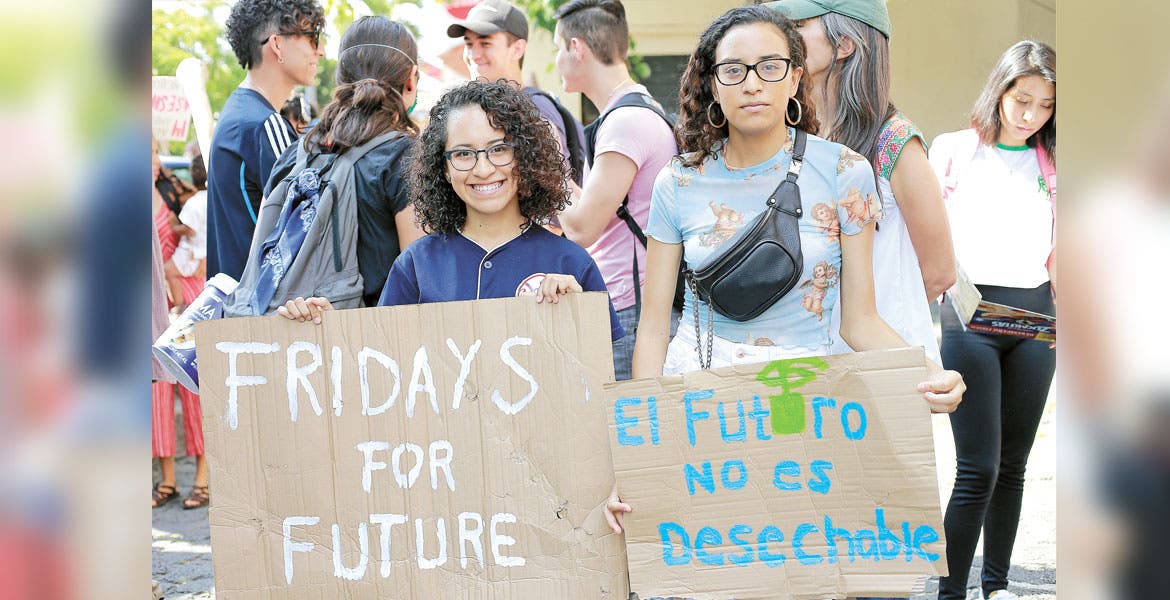 FRIDAYS
FOR
FUTURE
El Futuro
No es
Desechable